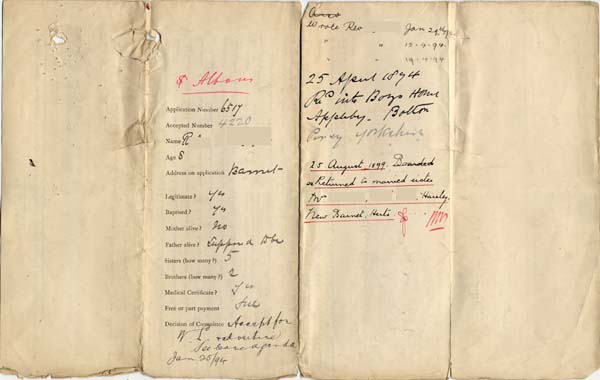 St Albans
Application Number 6517
Accepted Number 4220
Name R
Age 8
Address on application Barnet
Legitimate? Yes
Baptised? Yes
Mother alive? No
Father alive? Supposed to be
Sisters (how many?) 5
Brothers (how many?) 2
Medical Certificate? Yes
Free or part payment Free
Decision of Committee Accept for
See Case agenda
Jan 25/94
Wrote Rev Jan 29th/94
" " 12.4.94.
" " 19.4.94
25 April 1894
Recd into Boys Home
Appleby. Bolton
Percy Yorkshire
25 August, 1899. Boarded
Returned to married sister
Mr Hareley,
New Barnet, Herts.